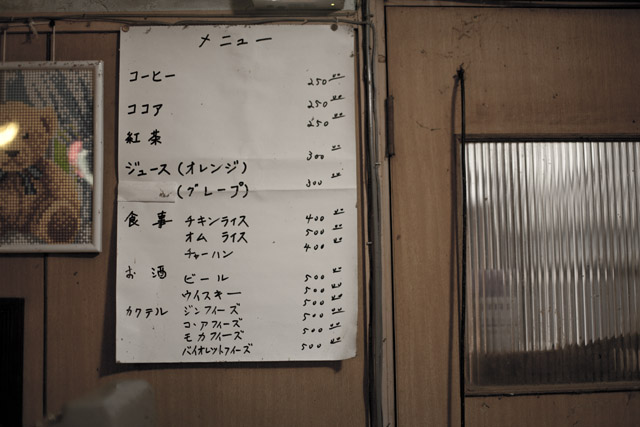 メニュー
コーヒー 250.00
ココア 250.00
紅茶 250.00
ジュース (オレンジ) 300.00
(グレープ) 300.00
食事 チキンライス 400.00
オムライス 500.00
チャーハン 400.00
お酒 ビール 500.00
ウイスキー 500.00
カクテル ジンフィーズ 500.00
コ・アフィーズ 500.00
モカフィーズ 500.00
バイオレットフィーズ 500.00